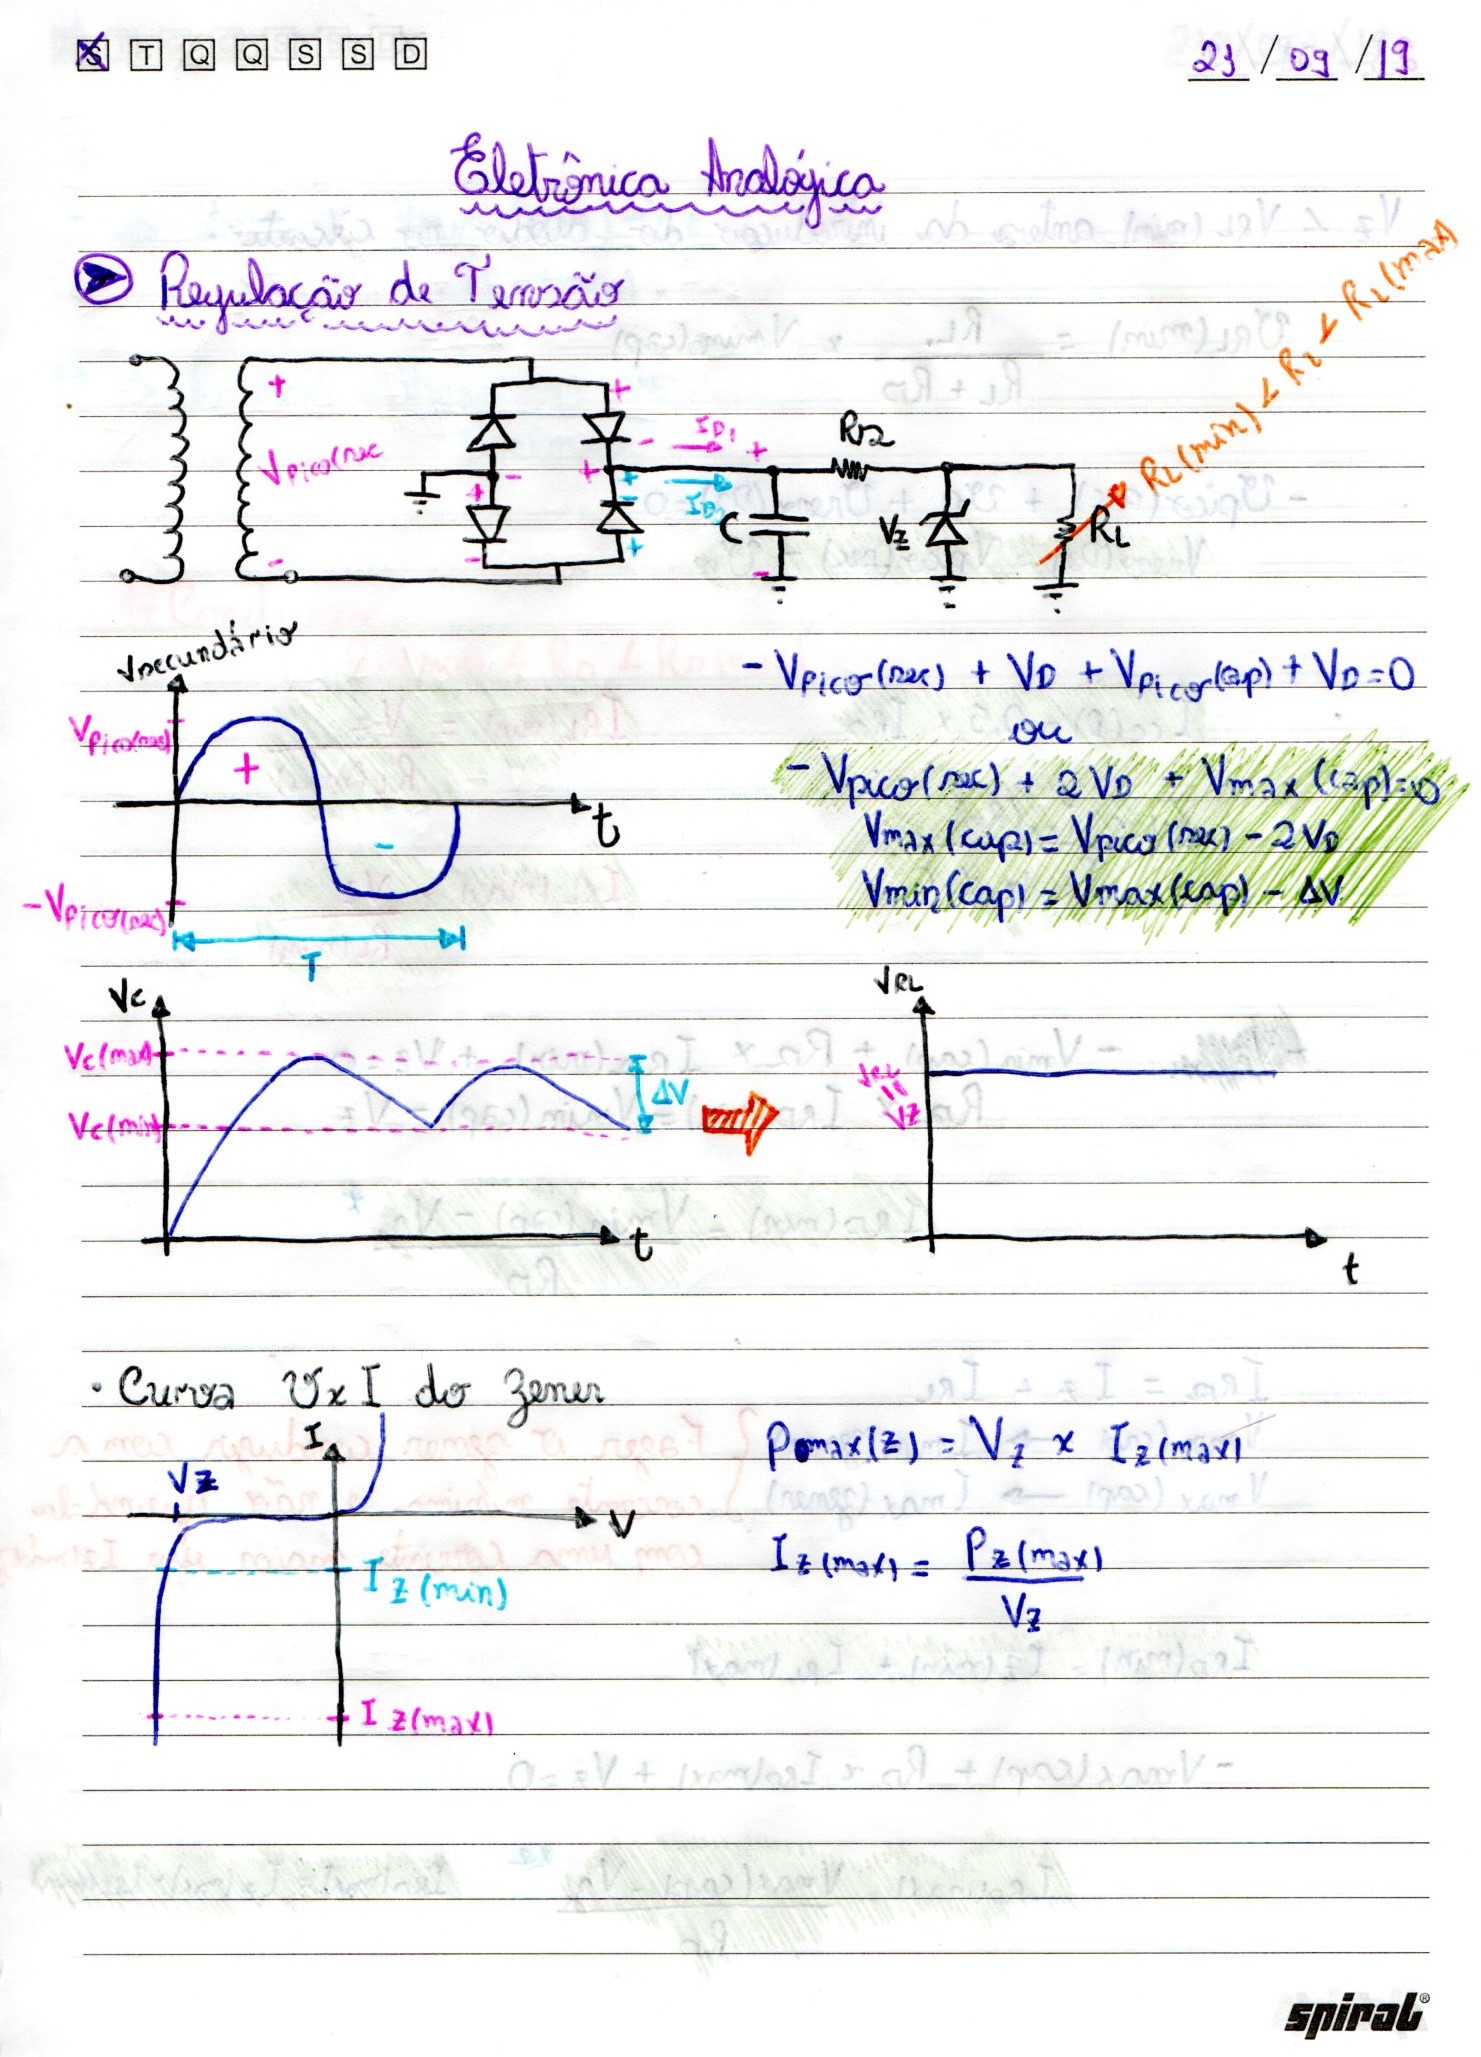 S T Q Q S S D
23 / 09 / 19
Eletrônica Analógica
Regulação de Tensão
RL(min) < RL < RL(max)
+ +
Vpico(sec
- ID1 +
+ + - ID2
- +
- -
+
C
VZ
RL
Vsecundário
Vpico(sec)
+
-
t
-Vpico(sec)
T
- Vpico(sec) + VD + Vpico(cap) + VD = 0
ou
- Vpico(sec) + 2VD + Vmax(cap) = 0
Vmax(cap) = Vpico(sec) - 2VD
Vmin(cap) = Vmax(cap) - ΔV
VC
VC(max)
VC(min)
ΔV
t
VRL
VRL
=
VZ
t
• Curva V x I do Zener
I
VZ
V
IZ(min)
IZ(max)
Pmax(Z) = VZ x IZ(max)
IZ(max) = PZ(max)
VZ
spiral®